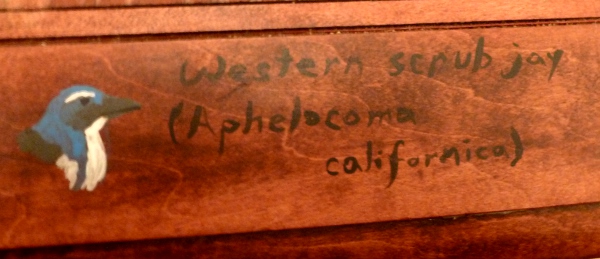 Western scrub jay
(Aphelocoma
californica)